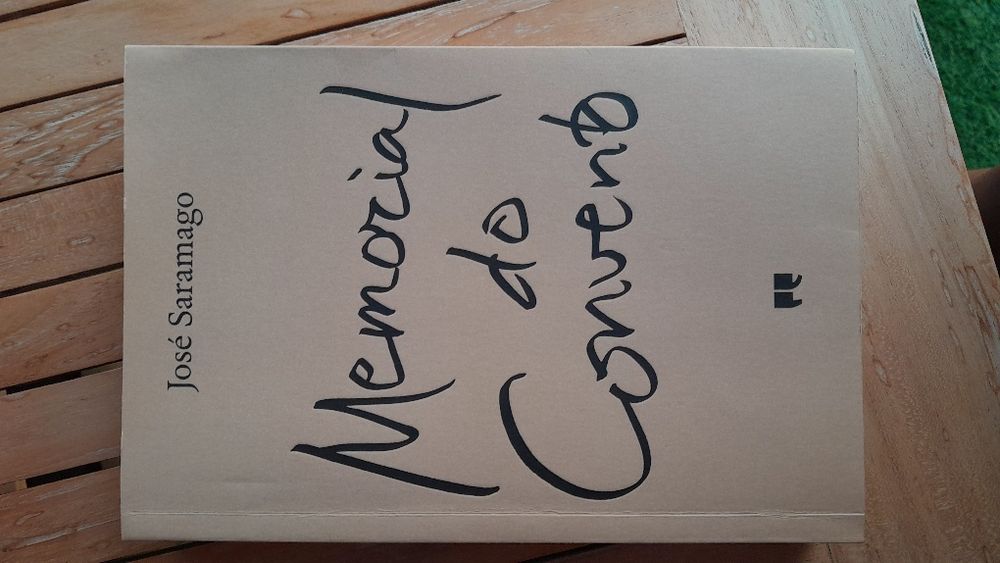 José Saramago
Memorial
do
Convento